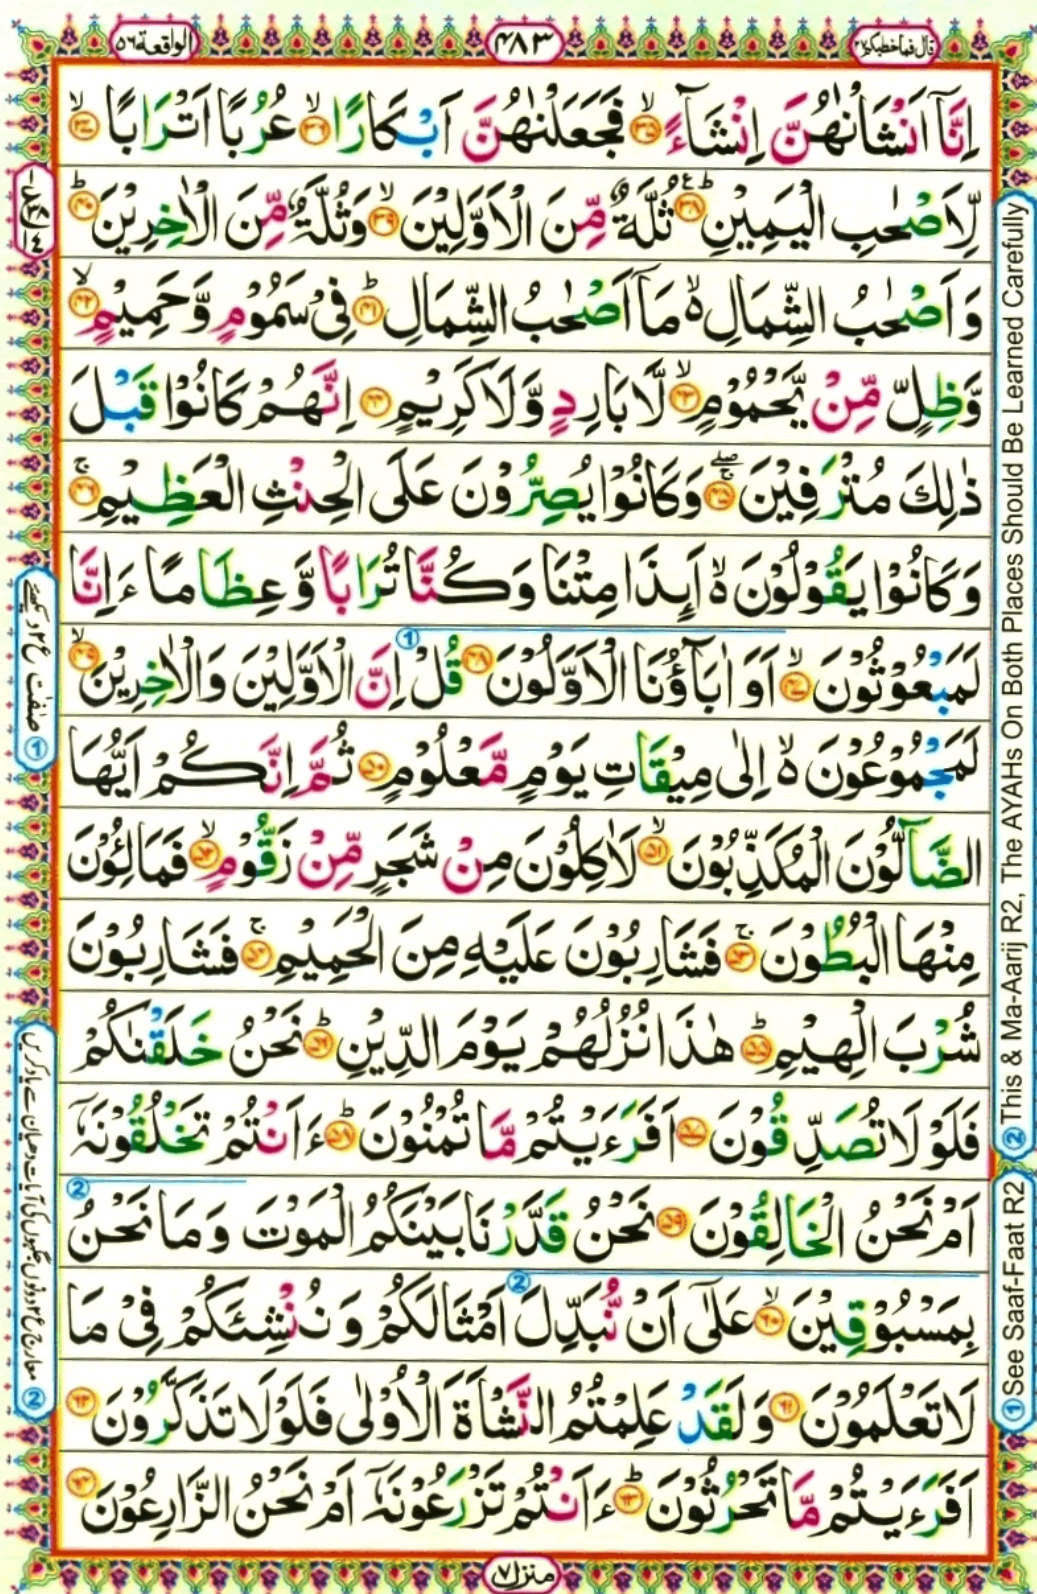 قال فما خطبكم ٢٧
٤٨٣
الواقعة ٥٦
اِنَّاۤ اَنْشَاْنٰهُنَّ اِنْشَآءً ۙ﴿۳۵﴾ فَجَعَلْنٰهُنَّ اَبْكَارًا ۙ﴿۳۶﴾ عُرُبًا اَتْرَابًا ۙ﴿۳۷﴾
لِّاَصْحٰبِ الْيَمِيْنِ ؕ﴿۳۸﴾ ثُلَّةٌ مِّنَ الْاَوَّلِيْنَ ۙ﴿۳۹﴾ وَثُلَّةٌ مِّنَ الْاٰخِرِيْنَ ؕ﴿۴۰﴾
وَاَصْحٰبُ الشِّمَالِ ۙ۬ مَاۤ اَصْحٰبُ الشِّمَالِ ؕ﴿۴۱﴾ فِيْ سَمُوْمٍ وَّحَمِيْمٍ ۙ﴿۴۲﴾
وَّظِلٍّ مِّنْ يَّحْمُوْمٍ ۙ﴿۴۳﴾ لَّا بَارِدٍ وَّلَا كَرِيْمٍ ﴿۴۴﴾ اِنَّهُمْ كَانُوْا قَبْلَ
ذٰلِكَ مُتْرَفِيْنَ ۚۖ﴿۴۵﴾ وَكَانُوْا يُصِرُّوْنَ عَلَى الْحِنْثِ الْعَظِيْمِ ۚ﴿۴۶﴾
وَكَانُوْا يَقُوْلُوْنَ ۙ۬ اَىِٕذَا مِتْنَا وَكُنَّا تُرَابًا وَّعِظَامًا ءَاِنَّا
لَمَبْعُوْثُوْنَ ۙ﴿۴۷﴾ اَوَاٰبَآؤُنَا الْاَوَّلُوْنَ ﴿۴۸﴾ ① قُلْ اِنَّ الْاَوَّلِيْنَ وَالْاٰخِرِيْنَ ۙ﴿۴۹﴾
لَمَجْمُوْعُوْنَ ۙ۬ اِلٰى مِيْقَاتِ يَوْمٍ مَّعْلُوْمٍ ﴿۵۰﴾ ثُمَّ اِنَّكُمْ اَيُّهَا
الضَّآلُّوْنَ الْمُكَذِّبُوْنَ ۙ﴿۵۱﴾ لَاٰكِلُوْنَ مِنْ شَجَرٍ مِّنْ زَقُّوْمٍ ۙ﴿۵۲﴾ فَمَالِـُٔوْنَ
مِنْهَا الْبُطُوْنَ ۚ﴿۵۳﴾ فَشَارِبُوْنَ عَلَيْهِ مِنَ الْحَمِيْمِ ۚ﴿۵۴﴾ فَشَارِبُوْنَ
شُرْبَ الْهِيْمِ ؕ﴿۵۵﴾ هٰذَا نُزُلُهُمْ يَوْمَ الدِّيْنِ ؕ﴿۵۶﴾ نَحْنُ خَلَقْنٰكُمْ
فَلَوْلَا تُصَدِّقُوْنَ ﴿۵۷﴾ اَفَرَءَيْتُمْ مَّا تُمْنُوْنَ ؕ﴿۵۸﴾ ءَاَنْتُمْ تَخْلُقُوْنَهٗۤ
اَمْ نَحْنُ الْخَالِقُوْنَ ﴿۵۹﴾ نَحْنُ قَدَّرْنَا بَيْنَكُمُ الْمَوْتَ ② وَمَا نَحْنُ
بِمَسْبُوْقِيْنَ ۙ﴿۶۰﴾ عَلٰۤى اَنْ نُّبَدِّلَ ② اَمْثَالَكُمْ وَنُنْشِئَكُمْ فِيْ مَا
لَا تَعْلَمُوْنَ ﴿۶۱﴾ وَلَقَدْ عَلِمْتُمُ النَّشْاَةَ الْاُوْلٰى فَلَوْلَا تَذَكَّرُوْنَ ﴿۶۲﴾
اَفَرَءَيْتُمْ مَّا تَحْرُثُوْنَ ؕ﴿۶۳﴾ ءَاَنْتُمْ تَزْرَعُوْنَهٗۤ اَمْ نَحْنُ الزَّارِعُوْنَ ﴿۶۴﴾
منزل ٧
① See Saaf-Faat R2
② This & Ma-Aarij R2, The AYAHs On Both Places Should Be Learned Carefully
① صٰفّٰت ع ۲ دیکھئے
② معارج ع ۲ دونوں جگہوں کی آیات دھیان سے یاد کریں